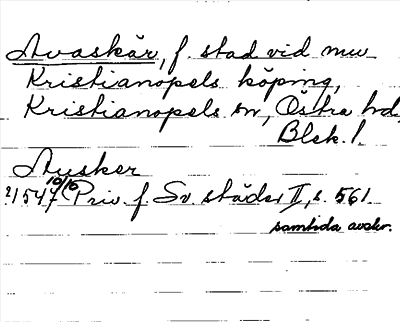 Avaskär, f. stad vid nuv.
Kristianopels köping,
Kristianopels sn, Östra hd,
Blek. l.
Ausker
21547 10/10 Priv. f. Sv. städer II, s. 561
samtida avskr.